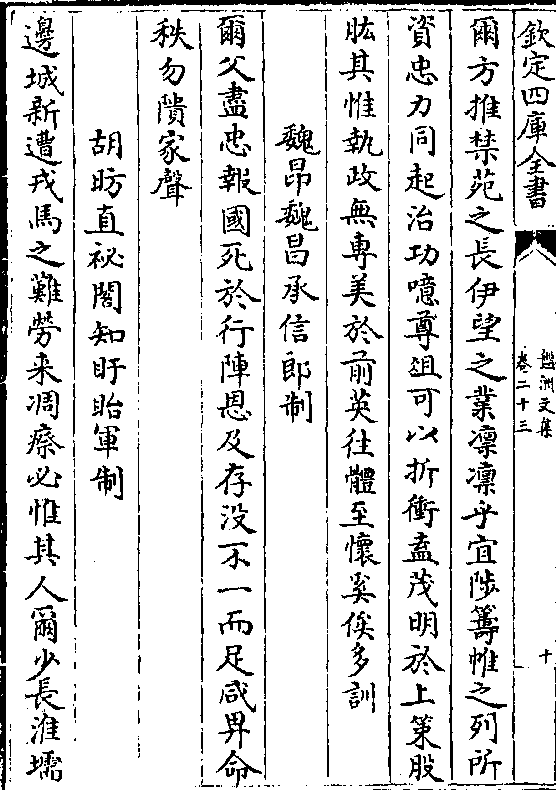 欽定四庫全書
盤洲文集
卷二十三
十
爾方推禁苑之長伊望之業凜凜乎宜陟籌帷之列所
資忠力同起治功噫尊俎可以折衝盍茂明於上策股
肱其惟執政無専美於前英往體至懷奚俟多訓
魏昂魏昌承信郎制
爾父盡忠報國死於行陣恩及存没不一而足咸畀命
秩勿隤家聲
胡昉直祕閣知盱眙軍制
邊城新遭戎馬之難勞来凋瘵必惟其人爾少長淮壖